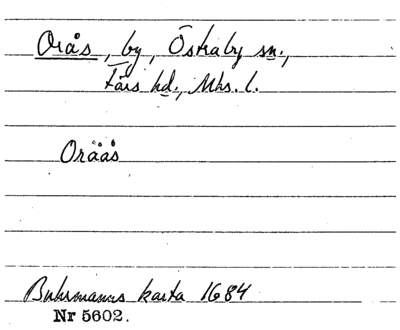 Orås, by, Östraby sn.,
Färs hd., Mhs. l.
Oråås
Buhrmanns karta 1684
Nr 5602.